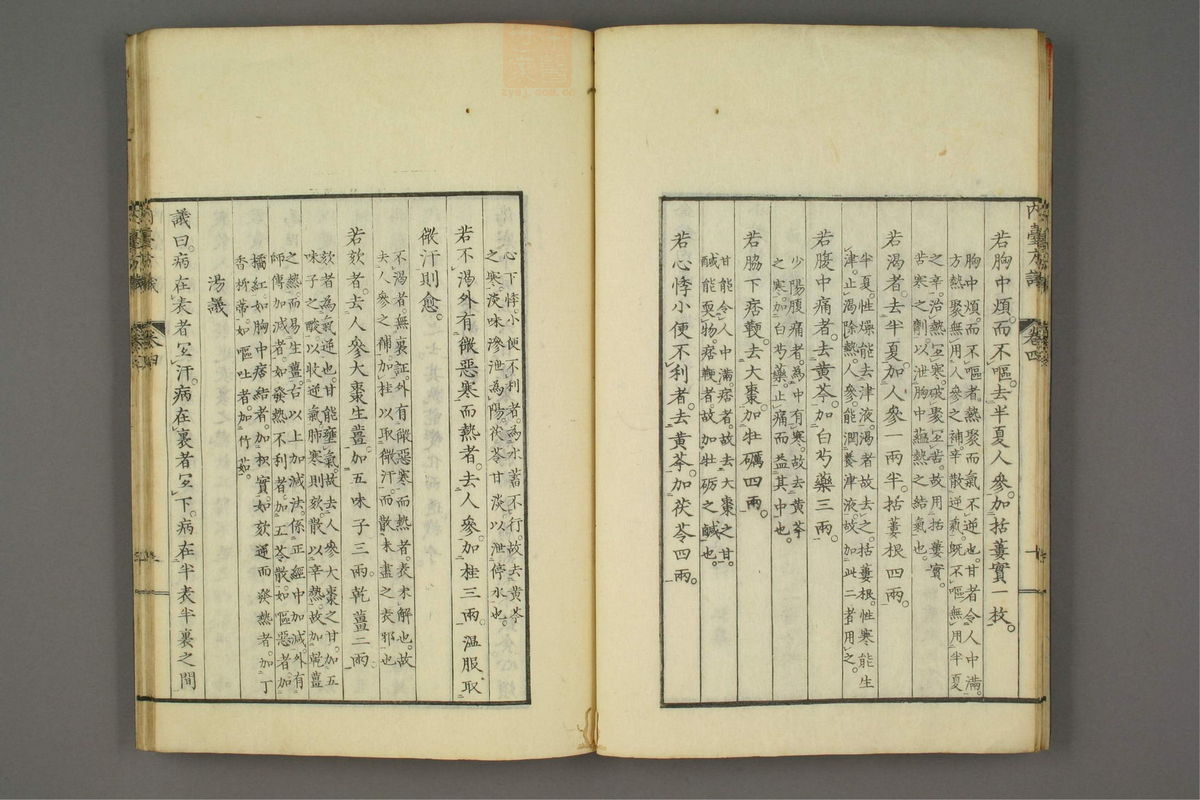 若胸中煩。而不嘔。去半夏人參。加括蔞實一枚。
胸中煩。而不嘔者。熱聚而氣不逆也。甘者令人中滿。
方熱聚無用人參之補。辛散逆氣。既不嘔無用半夏
之辛。治熱宜寒。破聚宜苦。故用括蔞實。
苦寒之劑。以泄胸中蘊熱之結氣也。
若渴者。去半夏。加人參一兩半。括蔞根四兩。
半夏。性燥能去津液。渴者故去之。括蔞根。性寒能生
津。止渴除熱。人參。能潤養津液。故加此二者用之。
若腹中痛者。去黄芩。加白芍藥三兩。
少陽腹痛者。為中有寒。故去黄芩
之寒。加白芍藥。止痛而益其中也。
若脇下痞鞕。去大棗。加牡礪四兩。
甘能令人中滿。痞者。故去大棗之甘。
鹹能耎物。痞鞕者故加牡砺之鹹也。
若心悸小便不利者。去黄芩。加茯苓四兩。
内臺方議
卷四
心下悸。小便不利者。為水蓄不行。故去黄芩
之寒。淡味滲泄為陽。茯苓甘淡以泄停水也。
若不渴外有微惡寒而熱者。去人參。加桂三兩。温服取
微汗則愈。
不渴者無裏証。外有微惡寒而熱者。表未解也。故
去人參之補。加桂以取微汗。而散未盡之表邪也
若欬者。去人參大棗生薑。加五味子三兩。乾薑二兩。
欬者為氣逆也。甘能壅氣。故去人參大棗之甘。加五
味子之酸。以收逆氣。肺寒則欬。散以辛熱。故加乾薑
之熱而易生薑。右以上加減法。係正經中加減。外有
師傳加減者。如發熱不利者。加五苓散。如嘔惡者加
橘紅。如胸中痞結者。加枳實。如欬逆而發熱者。加丁
香柿蒂。如嘔吐者。加竹茹。
湯議
議曰。病在表者宜汗。病在裏者宜下。病在半表半裏之間